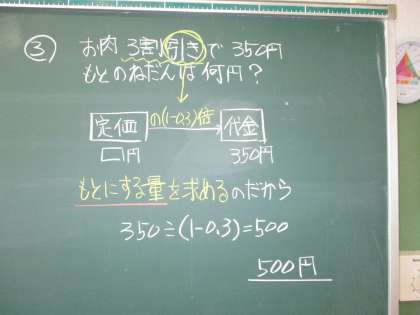 ③ お肉 3割引きで 350円
もとのねだんは 何円？
定価 の(1-0.3)倍 代金
□円 350円
もとにする量を求めるのだから
350÷(1-0.3)=500
500円